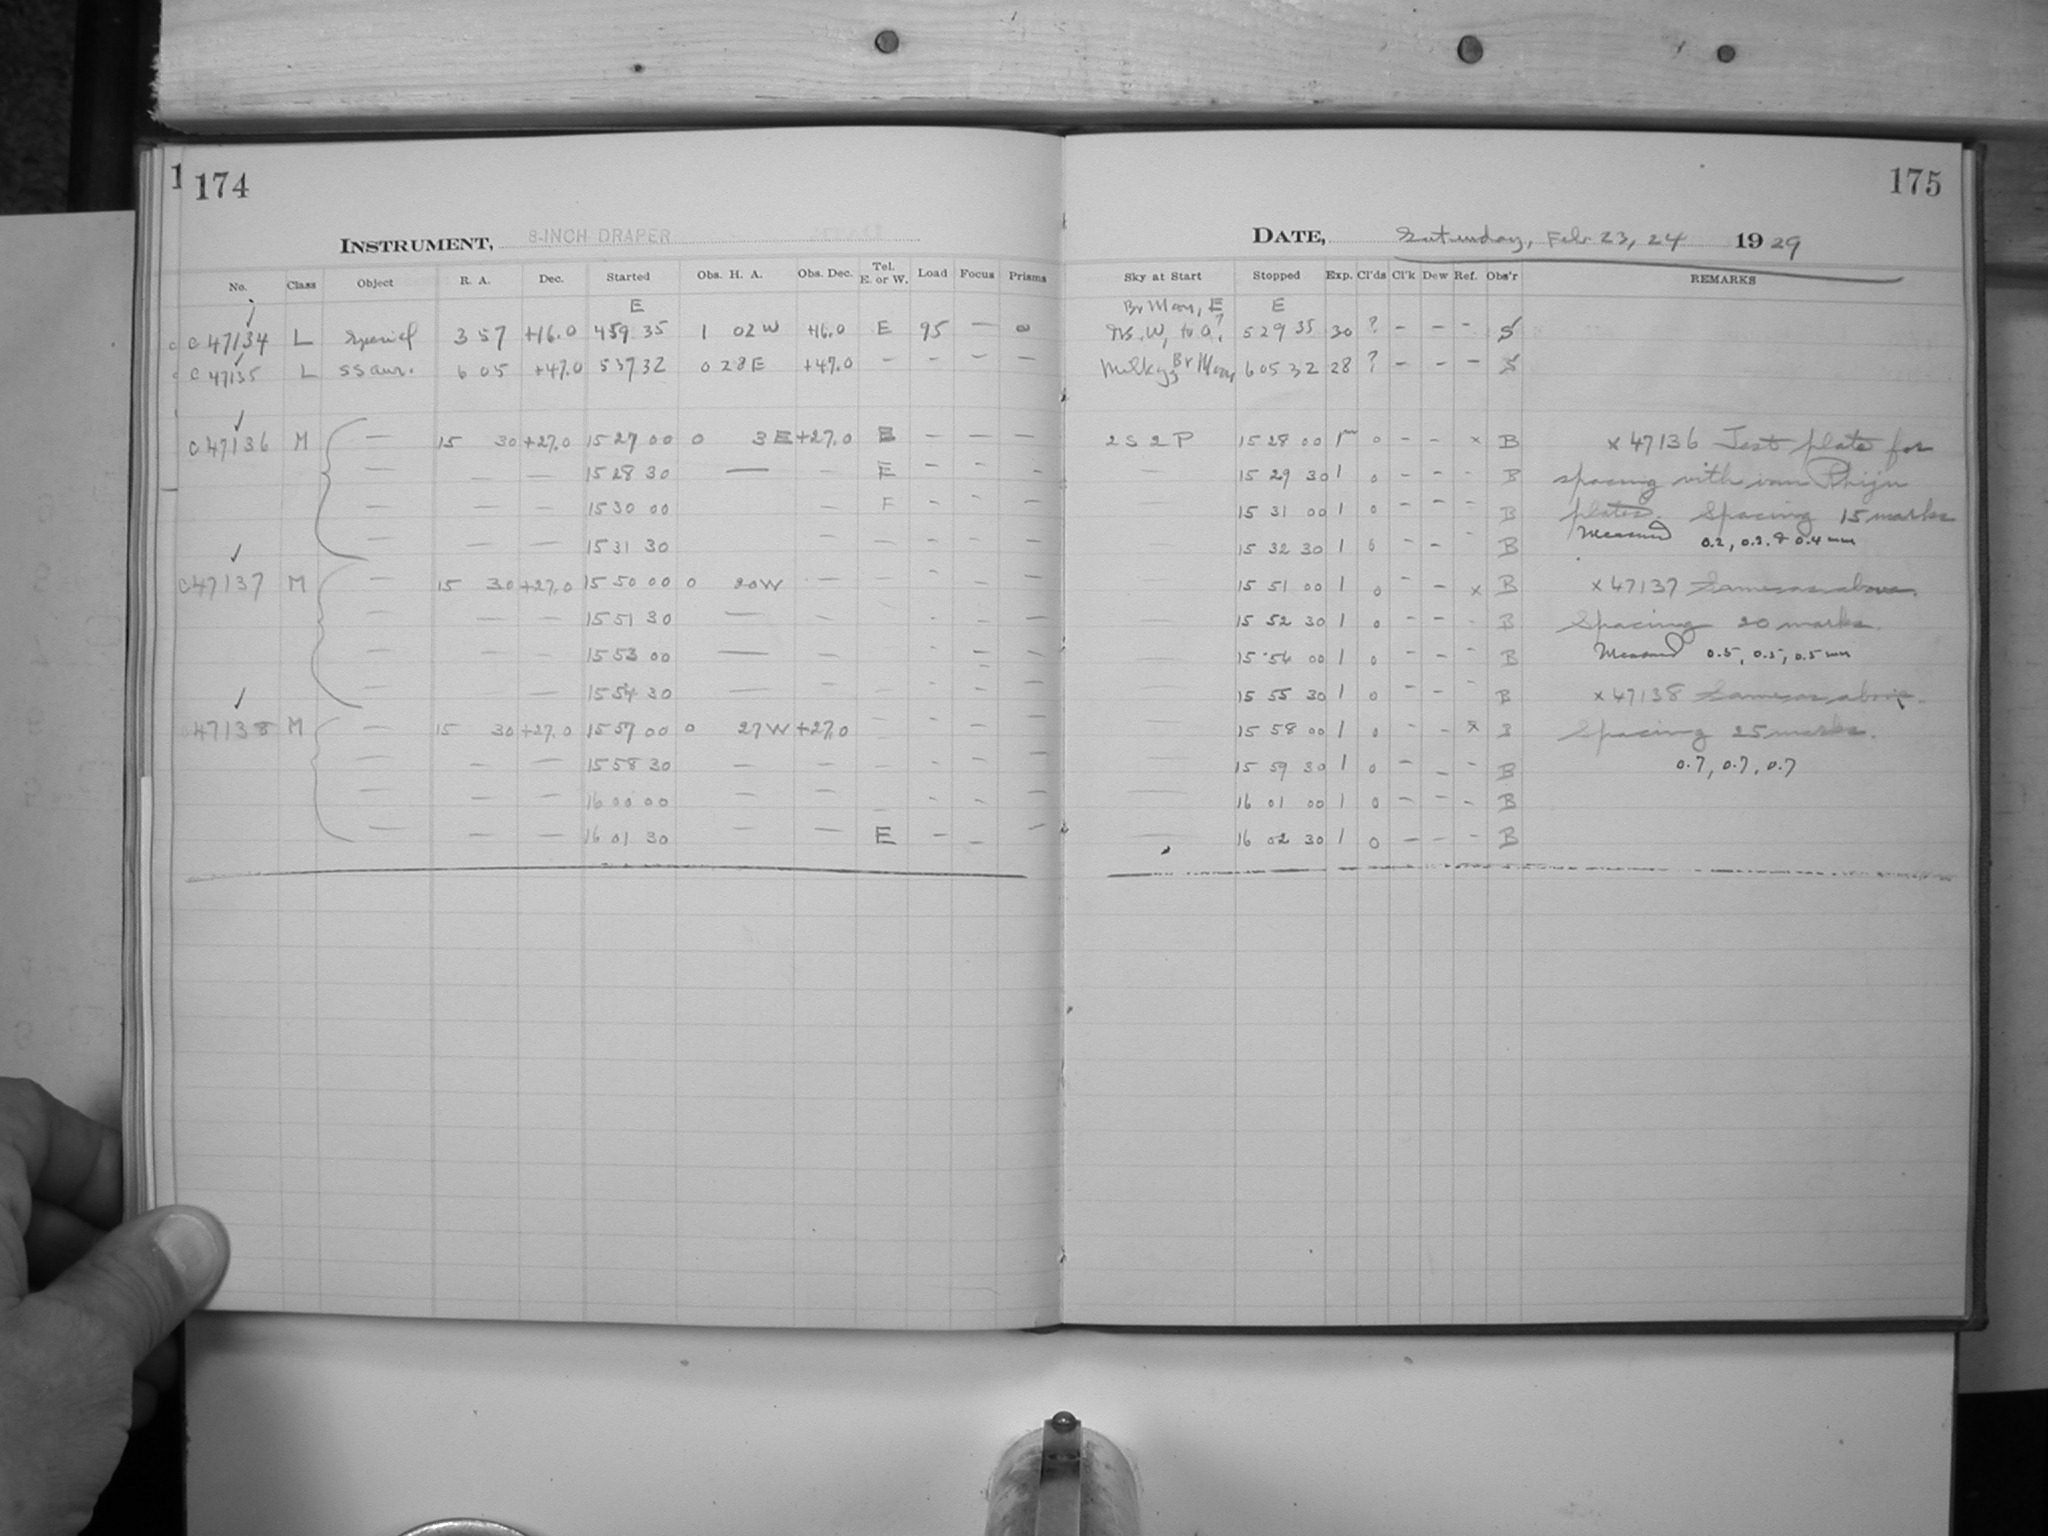 1 174
INSTRUMENT, 8-INCH DRAPER
No. Class Object R. A. Dec. Started Obs. H. A. Obs. Dec. Tel. E. or W. Load Focus Prisms
E
C 47134 L Special 3 57 +16.0 4 59 35 1 02 W +16.0 E 95 — 0
C 47135 L SS Aur. 6 05 +47.0 5 37 32 0 28 E +47.0 — — — —
C 47136 M — 15 30 +27.0 15 27 00 0 3 E +27.0 E — — —
— — — 15 28 30 — — E — — —
— — — 15 30 00 — E — — —
— — — 15 31 30 — — — — —
C 47137 M — 15 30 +27.0 15 50 00 0 20 W — — — — —
— — — 15 51 30 — — — — — —
— — — 15 53 00 — — — — — —
— — — 15 54 30 — — — — — —
47138 M — 15 30 +27.0 15 57 00 0 27 W +27.0 — — — —
— — — 15 58 30 — — — — — —
— — — 16 00 00 — — — — — —
— — — 16 01 30 — — E — — —
175
DATE, Saturday, Feb. 23, 24 1929
Sky at Start Stopped Exp. Cl'ds Cl'k Dew Ref. Obs'r REMARKS
Br Moon, E E
W, to 5 29 35 30 ? — — — S
Milky, Br Moon 6 05 32 28 ? — — — S
2 S 2 P 15 28 00 1m 0 — — x B x 47136 Test plate for
— 15 29 30 1 0 — — - B spacing with van Rhijn
— 15 31 00 1 0 — — - B plates. Spacing 15 marks
— 15 32 30 1 0 — — - B Measured 0.2, 0.3, & 0.4 mm
— 15 51 00 1 0 — — x B x 47137 Same as above.
— 15 52 30 1 0 — — - B Spacing 20 marks.
— 15 54 00 1 0 — — - B Measured 0.5, 0.5, 0.5 mm
— 15 55 30 1 0 — — - B x 47138 Same as above.
— 15 58 00 1 0 — — x B Spacing 25 marks.
— 15 59 30 1 0 — — - B 0.7, 0.7, 0.7
— 16 01 00 1 0 — — - B
— 16 02 30 1 0 — — - B